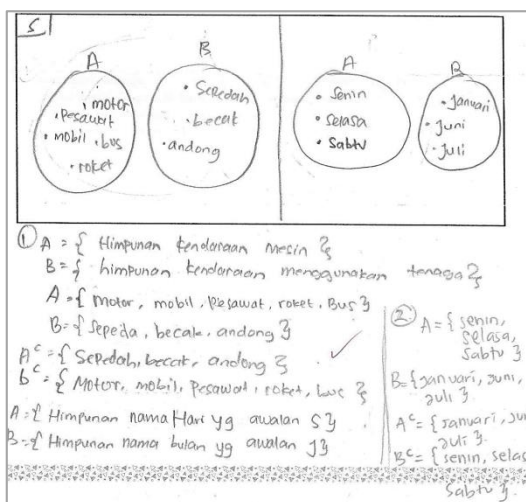 5
A
B
motor
Pesawat
mobil . bus
roket
Sepedah
becak
andong
A
B
Senin
Selasa
Sabtu
Januari
Juni
Juli
① A = { Himpunan kendaraan mesin }
B = { himpunan kendaraan menggunakan tenaga }
A = { Motor, mobil, Pesawat, roket, Bus }
B = { Sepeda, becak, andong }
A^c = { Sepedah, becak, andong }
b^c = { Motor, mobil, Pesawat, roket, bus }
A = { Himpunan nama Hari yg awalan S }
B = { Himpunan nama bulan yg awalan J }
② A = { senin,
selasa,
Sabtu }
B = { Januari, Juni,
Juli }
A^c = { Januari, Jun
Juli }
B^c = { senin, selas
Sabtu }